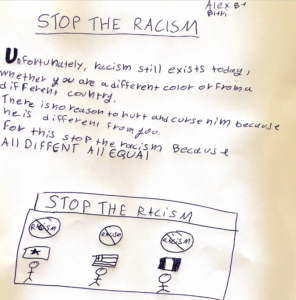 Alex B1
STOP THE RACISM
Unfortunately, racism still exists today,
whether you are a different color or from a
different country.
There is no reason to hurt and curse him because
he is different from you.
For this stop the racism Because
All DIFFENT All EQUAL
STOP THE RACISM
RACISM RACISM RACISM